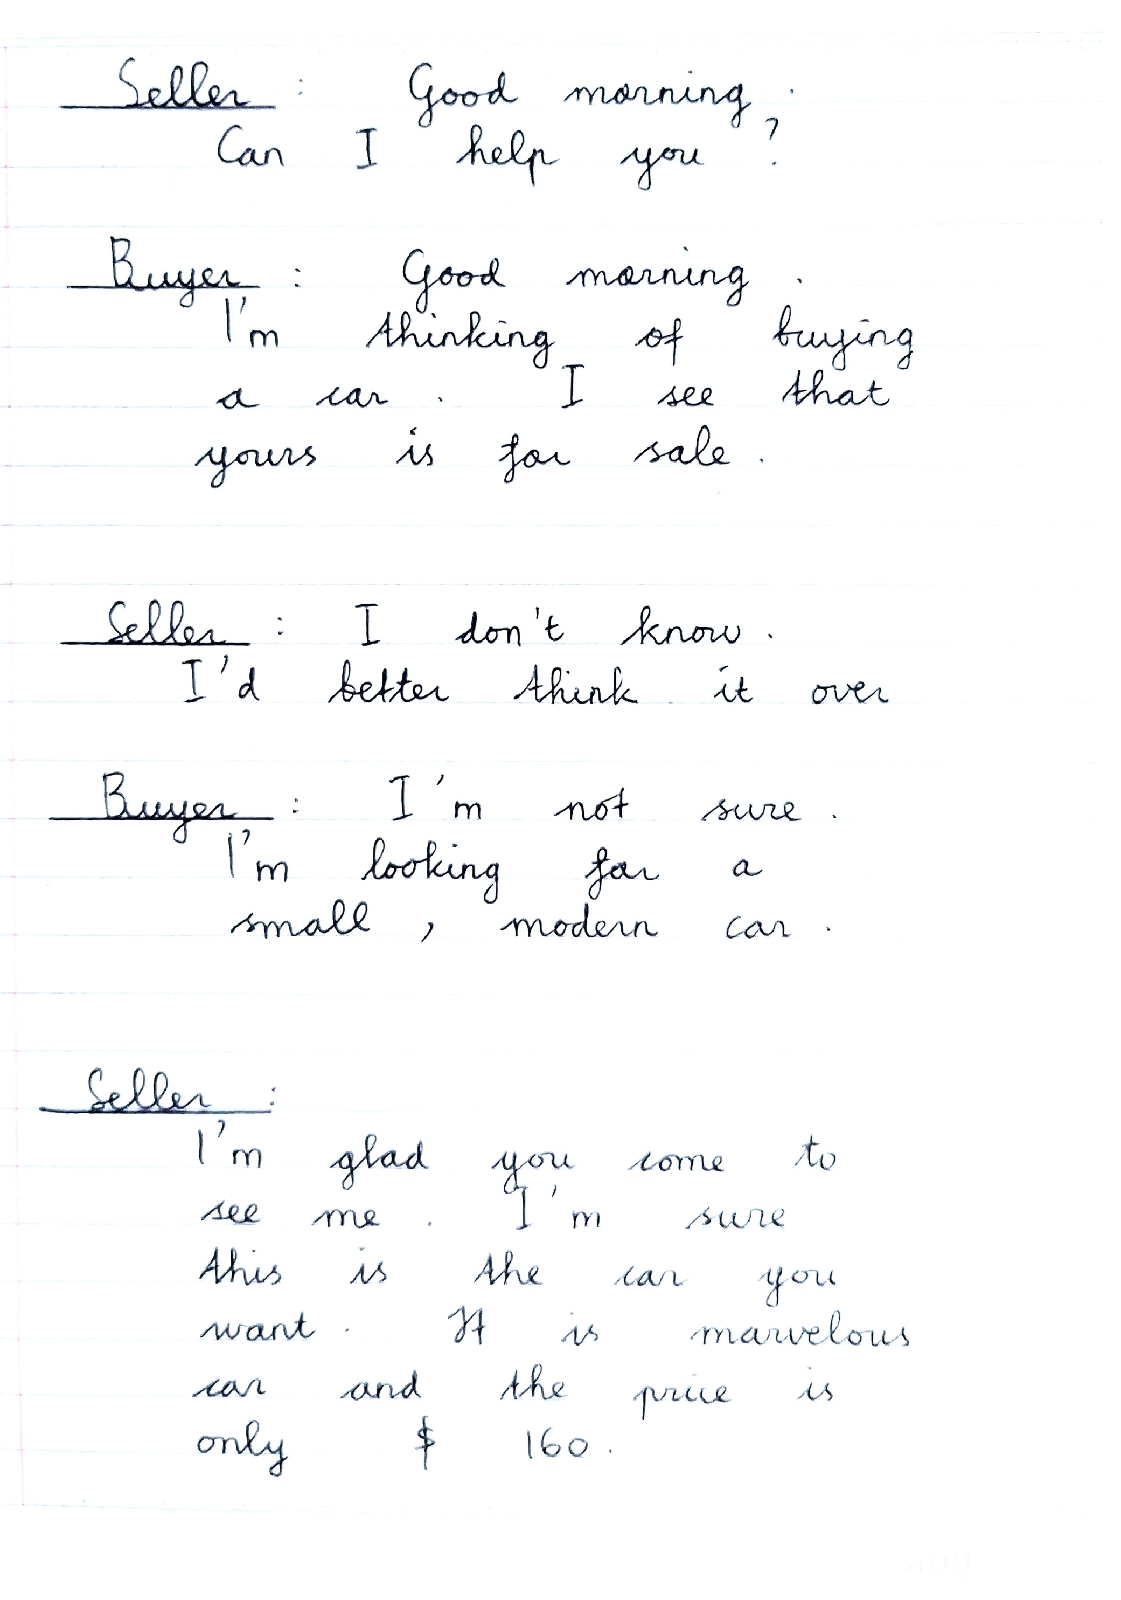 Seller : Good morning .
Can I help you ?
Buyer : Good morning .
I'm thinking of buying
a car . I see that
yours is for sale .
Seller : I don't know .
I'd better think it over
Buyer : I'm not sure .
I'm looking for a
small , modern car .
Seller :
I'm glad you come to
see me . I'm sure
this is the car you
want . It is marvelous
car and the price is
only $ 160 .